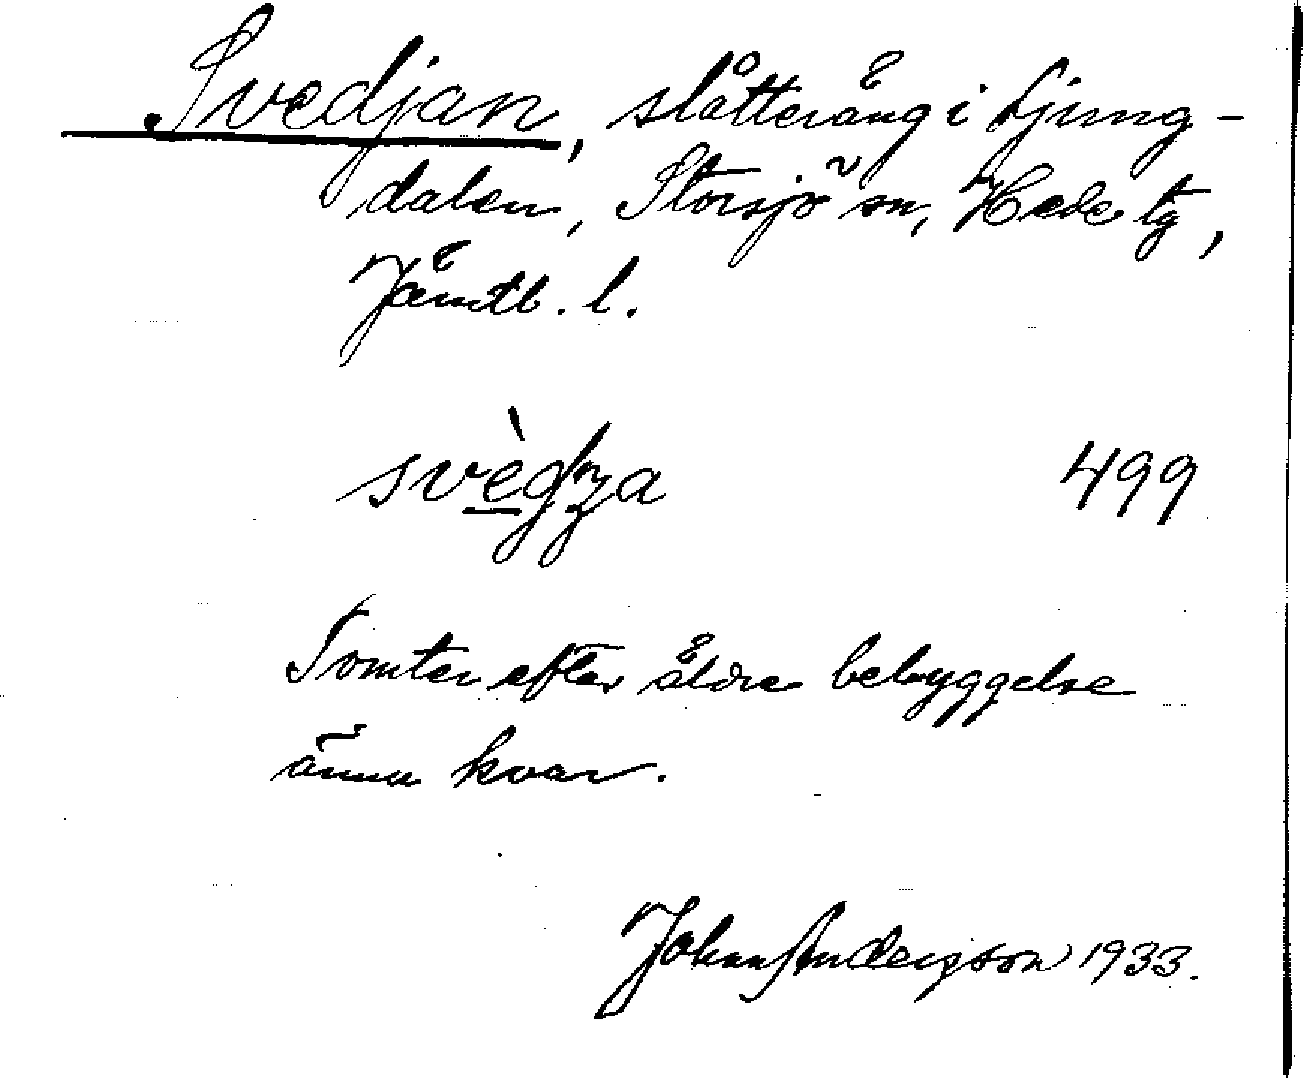 Svedjan, slåtteräng i Ljung-
dalen, Storsjö sn, Hede tg,
Jämtl. l.
499
Tomter efter äldre bebyggelse
ännu kvar.
Johan Andersson 1933.